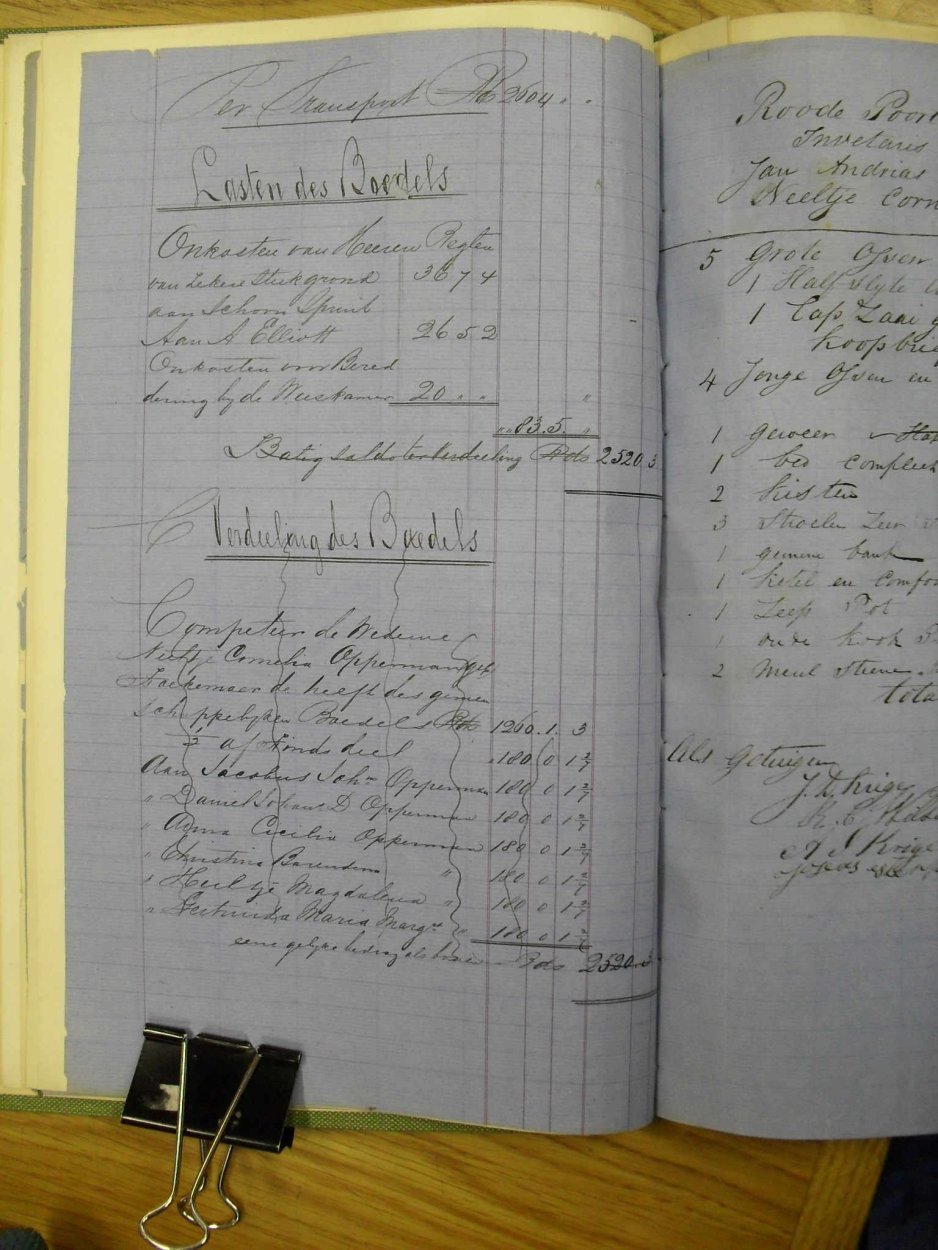 Per Transport Rds 2604 " "
Lasten des Boedels
Onkosten van Heeren Regten
van zekere stuk grond 36 7 4
aan Schoon Spruit
Aan A Elliott 26 5 2
Onkosten voor Bered
dering by de Weeskamer 20 " "
" " 83.5. "
Batig saldo ter verdeeling Rds 2520.3
Verdeeling des Boedels
Competeer de Weduwe
Neeltje Cornelia Opperman geb
de helft des gemeen
schappelyken Boedels Rds 1260.1.3
1/7 af Kinds deel " 180 0 1 2/7
Aan Jacobus Johs Opperman 180 0 1 2/7
" Daniel Johans D Opperman 180 0 1 2/7
" Anna Cecilia Opperman 180 0 1 2/7
" Christina Barendina " 180 0 1 2/7
" Heiltje Magdalena " 180 0 1 2/7
" Gertruida Maria Margt " 180 0 1 2/7
eene gelyke bedrag als boven Rds 2520.3
Roode Poort
Invetaris
Jan Andrias
Neeltje Corn
5 Grote Ossen
1 Half slyte
1 Cap Zaai
koopbrie
4 Jonge Ossen en
1 geweer
1 bed compleet
2 kisten
3 Stoelen Leer
1 gemene bank
1 ketel en Comfoo
1 Zeep Pot
1 oude kook
2 meul Steene
tota
Als Getuigen
J. D. Krige